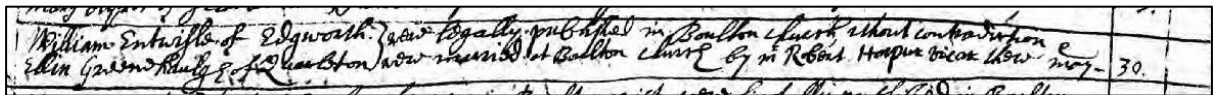 William Entwisle of Edgworth } were legally published in Boulton Church without contradiction
Ellin Greenhalgh of Quarlton } were maried at Boulton Church by mr Robert Harpur vicar there may - 30.